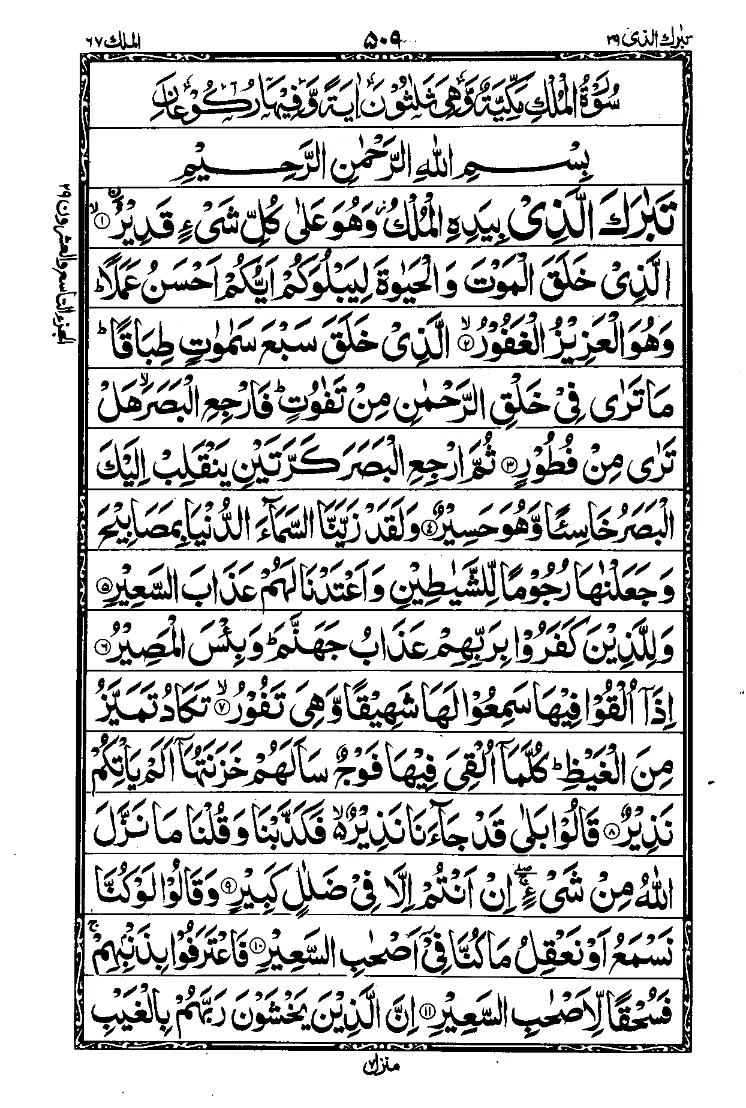 تبٰرك الذی ٢٩
٥٠٩
الملك ٦٧
سُوْرَةُ الْمُلْكِ مَكِّيَّةٌ وَّهِيَ ثَلٰثُوْنَ اٰيَةً وَّفِيْهَا رُكُوْعَانِ
بِسْمِ اللّٰهِ الرَّحْمٰنِ الرَّحِيْمِ
تَبٰرَكَ الَّذِیْ بِيَدِهِ الْمُلْكُ وَهُوَ عَلٰى كُلِّ شَیْءٍ قَدِيْرُ ۙ﴿١﴾
الَّذِیْ خَلَقَ الْمَوْتَ وَالْحَيٰوةَ لِيَبْلُوَكُمْ اَيُّكُمْ اَحْسَنُ عَمَلًا ؕ
وَهُوَ الْعَزِيْزُ الْغَفُوْرُ ۙ﴿٢﴾ الَّذِیْ خَلَقَ سَبْعَ سَمٰوٰتٍ طِبَاقًا ؕ
مَا تَرٰى فِیْ خَلْقِ الرَّحْمٰنِ مِنْ تَفٰوُتٍ ؕ فَارْجِعِ الْبَصَرَ ۙ هَلْ
تَرٰى مِنْ فُطُوْرٍ ﴿٣﴾ ثُمَّ ارْجِعِ الْبَصَرَ كَرَّتَيْنِ يَنْقَلِبْ اِلَيْكَ
الْبَصَرُ خَاسِئًا وَّهُوَ حَسِيْرٌ ﴿٤﴾ وَلَقَدْ زَيَّنَّا السَّمَآءَ الدُّنْيَا بِمَصَابِيْحَ
وَجَعَلْنٰهَا رُجُوْمًا لِّلشَّيٰطِيْنِ وَاَعْتَدْنَا لَهُمْ عَذَابَ السَّعِيْرِ ﴿٥﴾
وَلِلَّذِيْنَ كَفَرُوْا بِرَبِّهِمْ عَذَابُ جَهَنَّمَ ؕ وَبِئْسَ الْمَصِيْرُ ﴿٦﴾
اِذَآ اُلْقُوْا فِيْهَا سَمِعُوْا لَهَا شَهِيْقًا وَّهِیَ تَفُوْرُ ۙ﴿٧﴾ تَكَادُ تَمَيَّزُ
مِنَ الْغَيْظِ ؕ كُلَّمَآ اُلْقِیَ فِيْهَا فَوْجٌ سَاَلَهُمْ خَزَنَتُهَآ اَلَمْ يَاْتِكُمْ
نَذِيْرٌ ﴿٨﴾ قَالُوْا بَلٰى قَدْ جَآءَنَا نَذِيْرٌ ۙ۬ فَكَذَّبْنَا وَقُلْنَا مَا نَزَّلَ
اللّٰهُ مِنْ شَیْءٍ ۚۖ اِنْ اَنْتُمْ اِلَّا فِیْ ضَلٰلٍ كَبِيْرٍ ﴿٩﴾ وَقَالُوْا لَوْ كُنَّا
نَسْمَعُ اَوْ نَعْقِلُ مَا كُنَّا فِیْۤ اَصْحٰبِ السَّعِيْرِ ﴿١٠﴾ فَاعْتَرَفُوْا بِذَنْۢبِهِمْ ۚ
فَسُحْقًا لِّاَصْحٰبِ السَّعِيْرِ ﴿١١﴾ اِنَّ الَّذِيْنَ يَخْشَوْنَ رَبَّهُمْ بِالْغَيْبِ
منزل ٧
الجزء التاسع والعشرون ٢٩